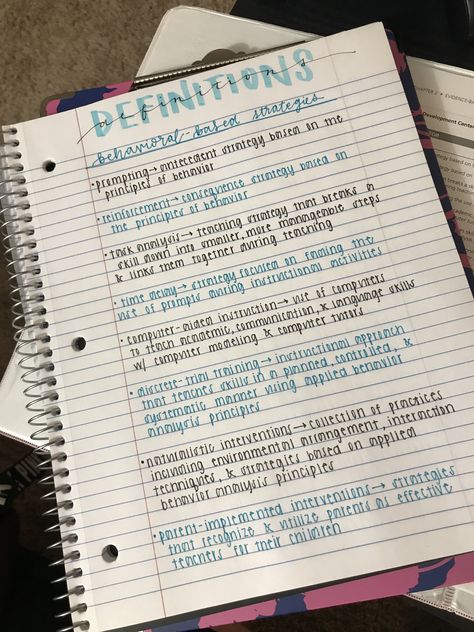 DEFINITIONS
definitions
behavioral-based strategies
• prompting → antecedent strategy based on the
principles of behavior
• reinforcement → consequence strategy based on
the principles of behavior
• task analysis → teaching strategy that breaks a
skill down into smaller, more manageable steps
& links them together during teaching
• time delay → strategy focused on fading the
use of prompts during instructional activities
• computer-aided instruction → use of computers
to teach academic, communication, & language skills
w/ computer modeling & computer tutors
• discrete-trial training → instructional approach
that teaches skills in a planned, controlled, &
systematic manner using applied behavior
analysis principles
• naturalistic interventions → collection of practices
including environmental arrangement, interaction
techniques, & strategies based on applied
behavior analysis principles
• parent-implemented interventions → strategies
that recognize & utilize parents as effective
teachers for their children
CHAPTER 2 • EVIDENCE
Development Center